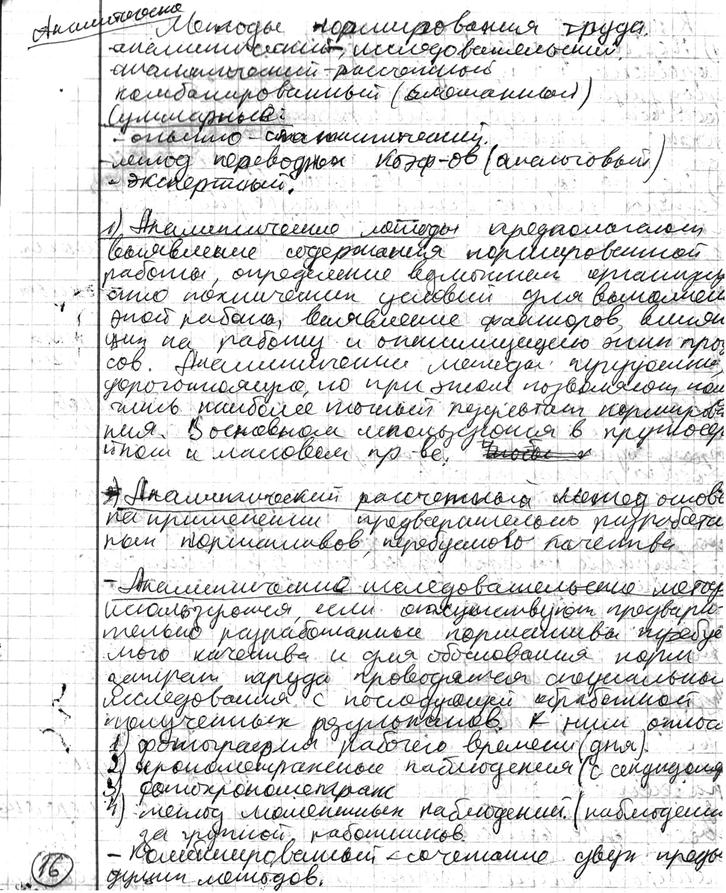 Аналитическо
Методы нормирования труда.
- аналитический - исследовательский.
- аналитический - рассчетный
комбинированный (смешанный)
Суммарный:
- опытно - статистический.
- метод переводных коэф-ов (аналоговый)
- экспертный.
1) Аналитические методы предполагают
выявление содержания нормированной
работы, определение
технических условий для выполнен
этой работы, выявление факторов, влияю
щих на работу и оптимизацию этих проц
сов. Аналитические методы
дорогостоящие, но при этом позволяют пол
учить наиболее точный результат нормирова
ния. В основном используются в крупносер
ийном и массовом пр-ве.
- Аналитический рассчетный метод основ
на применении предварительно разработан
ных нормативов, требуемого качества
- Аналитические исследовательские методы
используются, если отсутствуют предвари
тельно разработанные нормативы требуе
мого качества и для обоснования норм
затрат труда проводятся специальные
исследования с последующей обработкой
полученных результатов. К ним относ
1) фотография рабочего времени (дня).
2) хронометражные наблюдения (с секундоме
3) фотохронометраж
4) метод моментных наблюдений. (наблюдение
за группой работников.
- Комбинированный - сочетание двух преды
дущих методов.
16